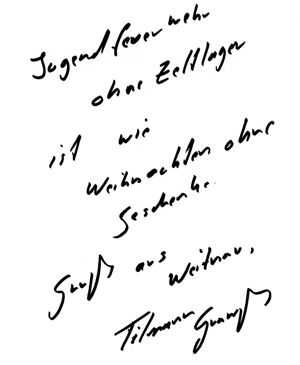 Jugendfeuerwehr
ohne Zeltlager
ist wie
Weihnachten ohne
Geschenke.
Gruß aus Weitnau,
Tilmann